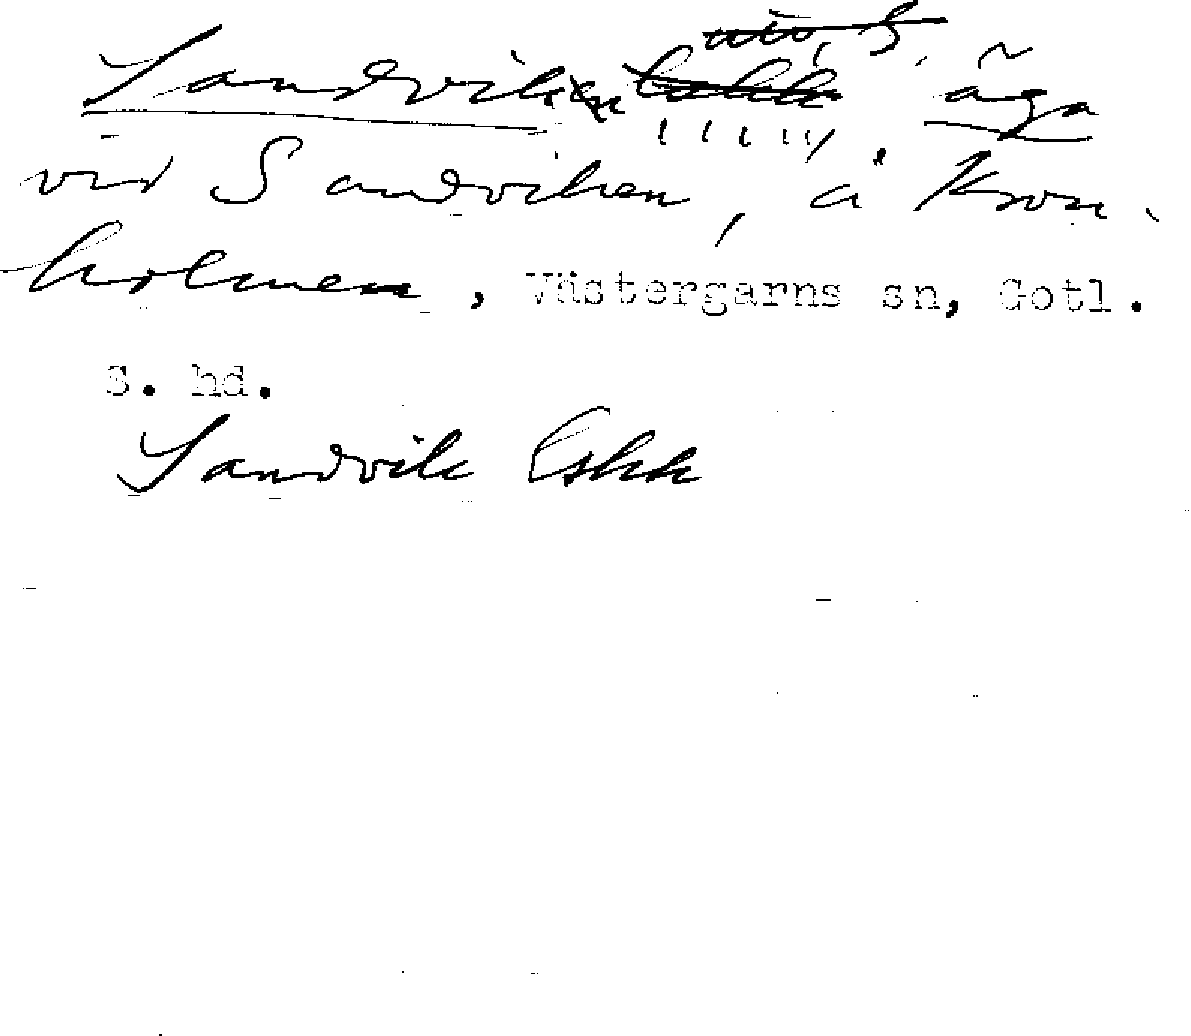 Sandviken äga
vid Sandviken, å Kron-
holmen, Västergarns sn, Gotl.
S. hd.
Sandvik Eskk